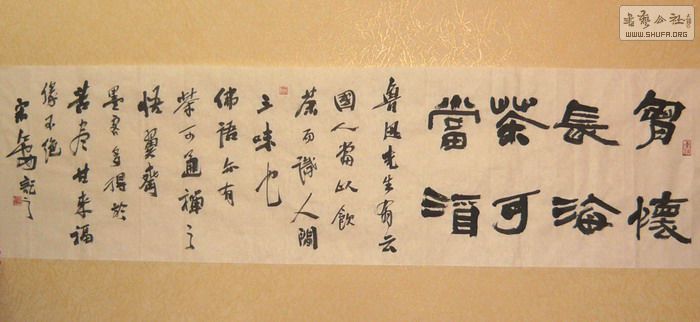 書藝公社
WWW.SHUFA.ORG
胷懷
長海
茶可
當酒
魯迅先生有云
國人當以飲
茶而識人間
三味也
佛語亦有
茶可通禪之
悟翼齋
墨君多得於
苦盡甘來福
緣不絕
記之